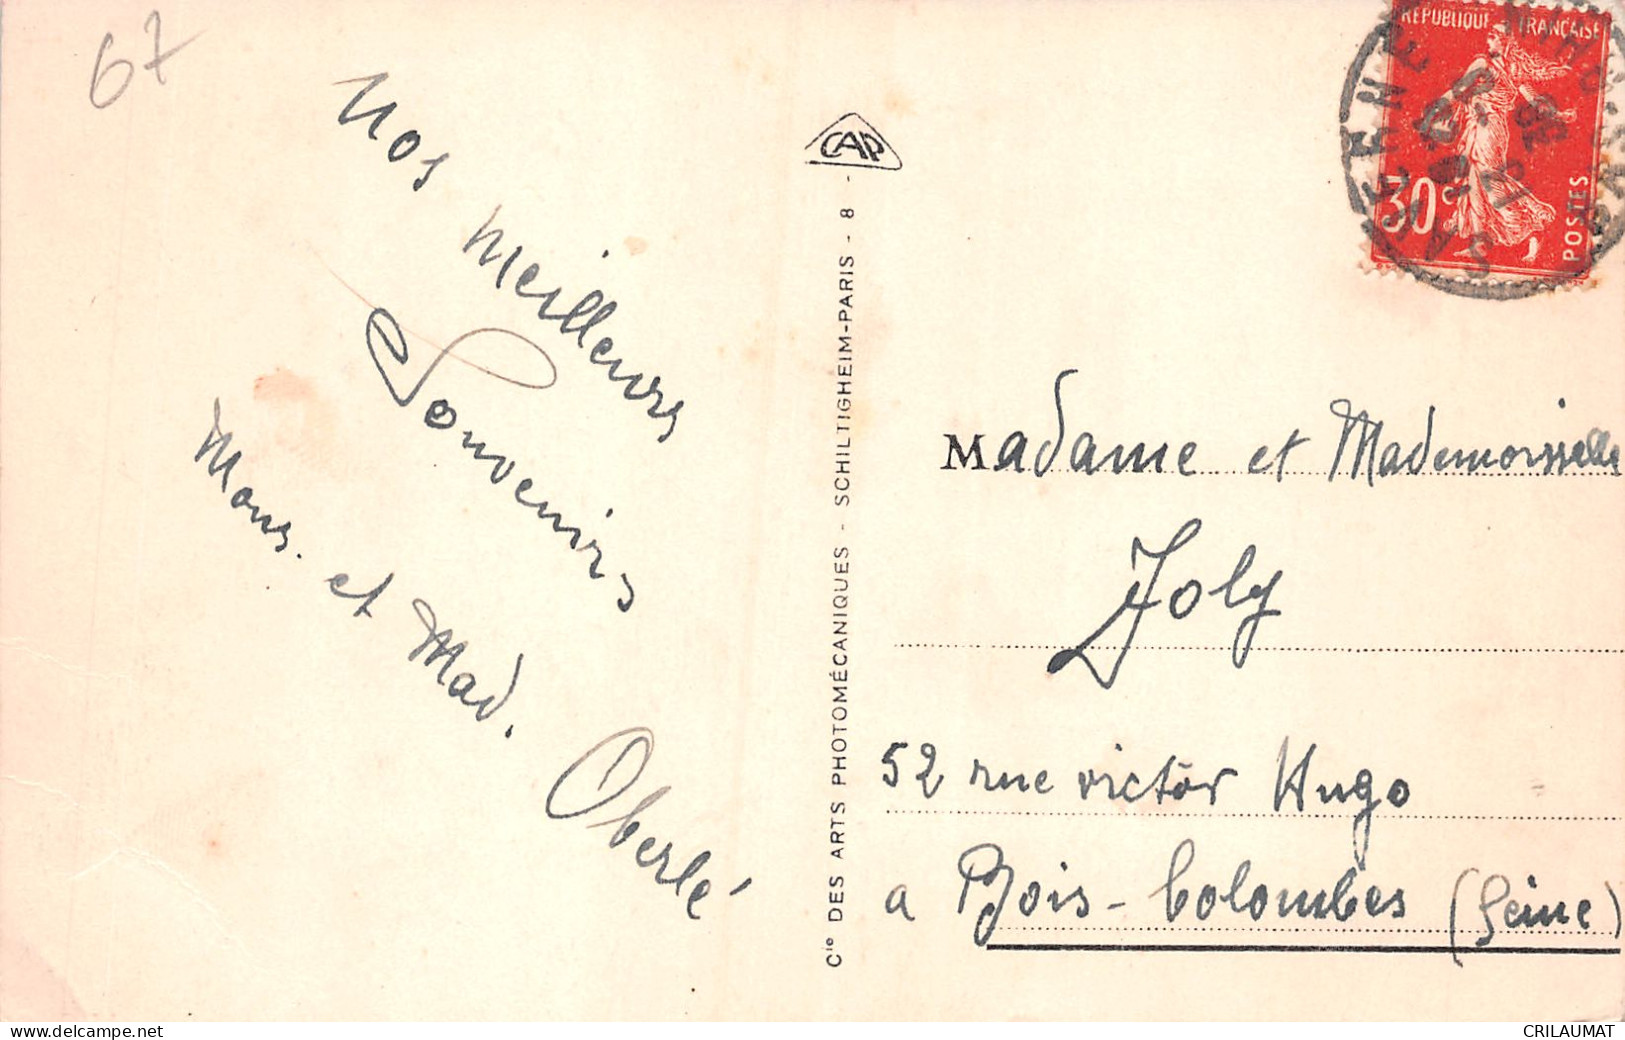 67
Nos
meilleurs
Souvenirs
Mons. et Mad.
Oberlé
CAP
Cie DES ARTS PHOTOMÉCANIQUES - SCHILTIGHEIM-PARIS - 8 -
RÉPUBLIQUE FRANÇAISE
30c
POSTES
SAVERNE
Madame et Mademoisselle
Joly
52 rue victor Hugo
a Bois-Colombes (Seine)
www.delcampe.net
CRILAUMAT